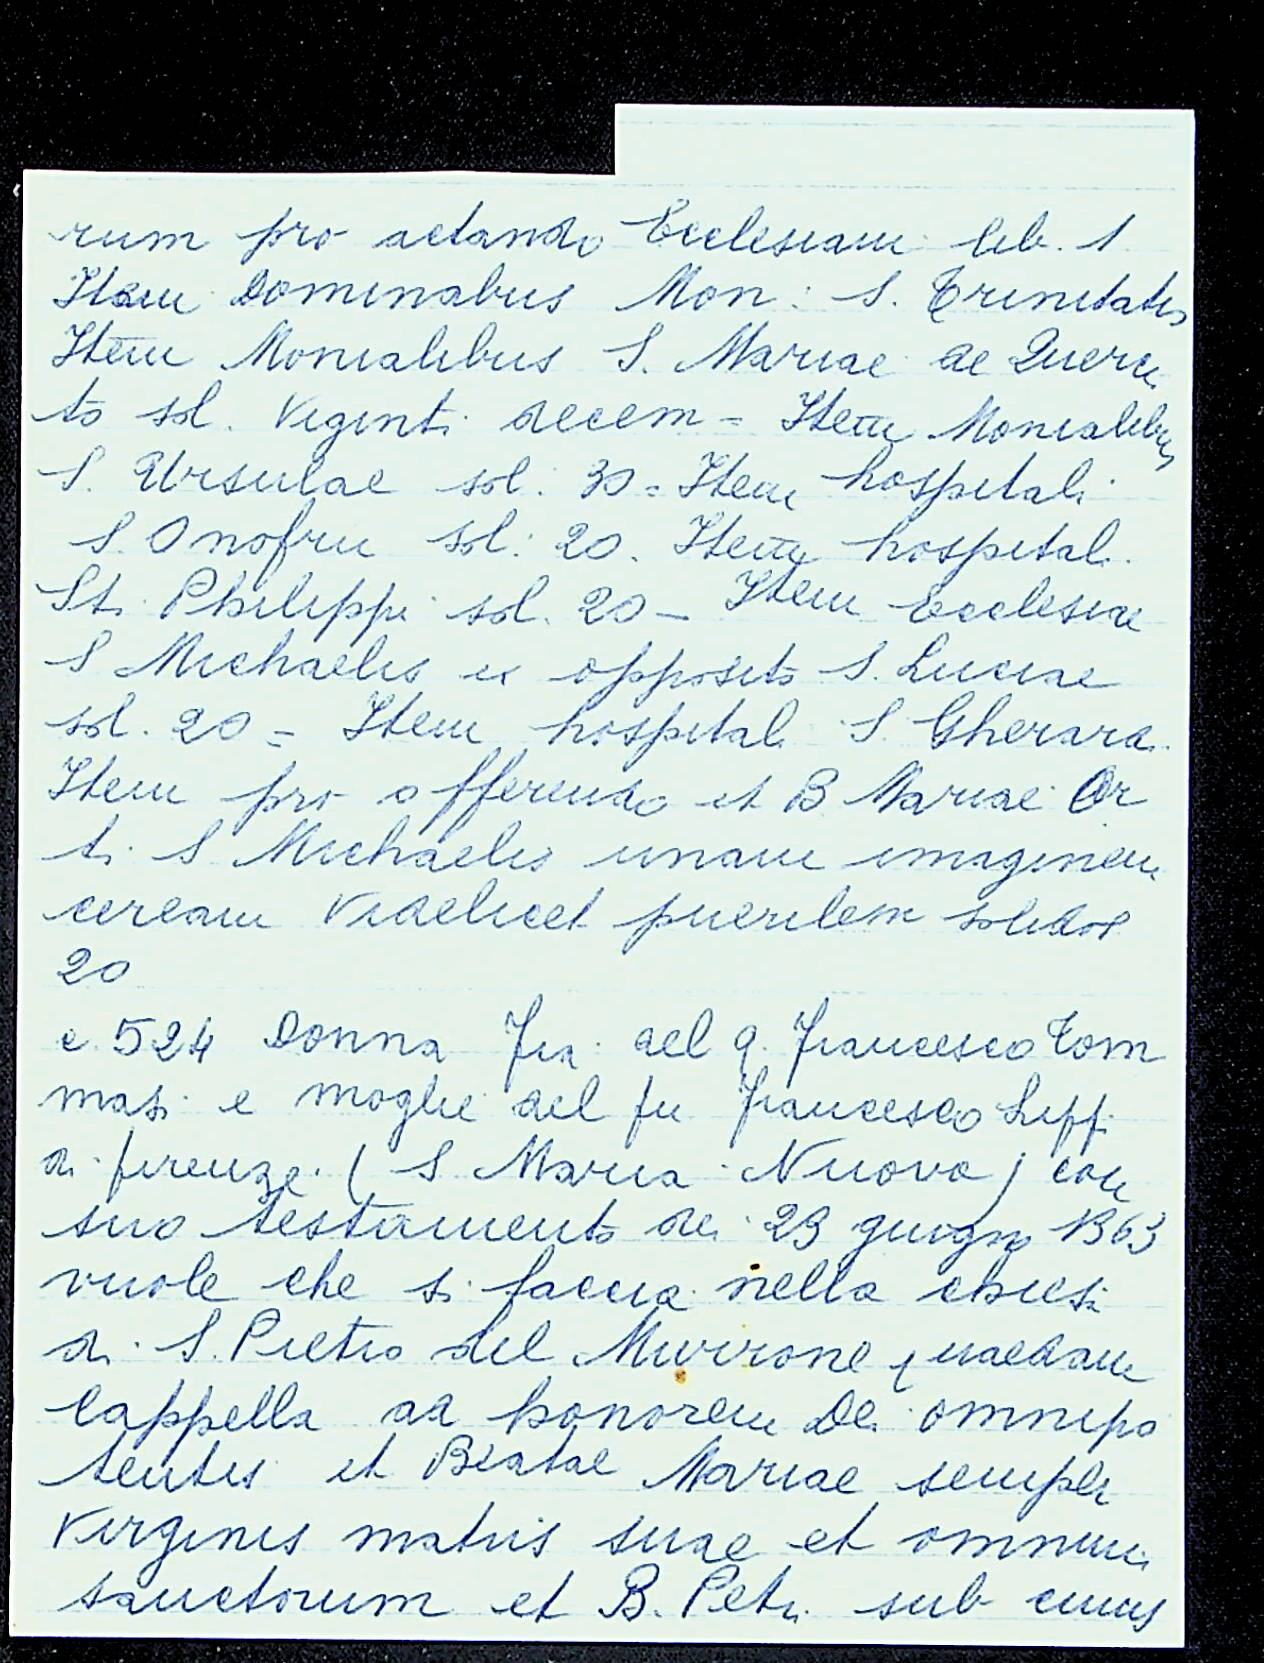 rum pro actando Ecclesiam lib. 1
Item Dominabus Mon: S. Trinitatis
Item Monialibus S. Mariae de Querce
to sol. Viginti decem = Item Monialibus
S. Ursulae sol: 30 = Item hospitali
S. Onofrii sol: 20. Item hospitali
Sti Philippi sol. 20 - Item Ecclesiae
S Michaelis ex opposito S. Luciae
sol. 20 = Item hospitali S Gherardi
Item pro offerendo et B Mariae Or
ti S Michaelis unam imaginem
ceream videlicet puerilem solidos
20
c. 524 Donna Fia del q. Francesco Tom
masi e moglie del fu Francesco Lippi
di firenze. ( S Maria Nuova ) con
suo testamento dei 29 giugno 1363
vuole che si faccia nella chiesi
di S. Pietro del Murrone quaedam
Cappella ad honorem Dei omnipo
tentis et Beatae Mariae semper
Virginis matris suae et omnium
sanctorum et B. Petri sub cuius